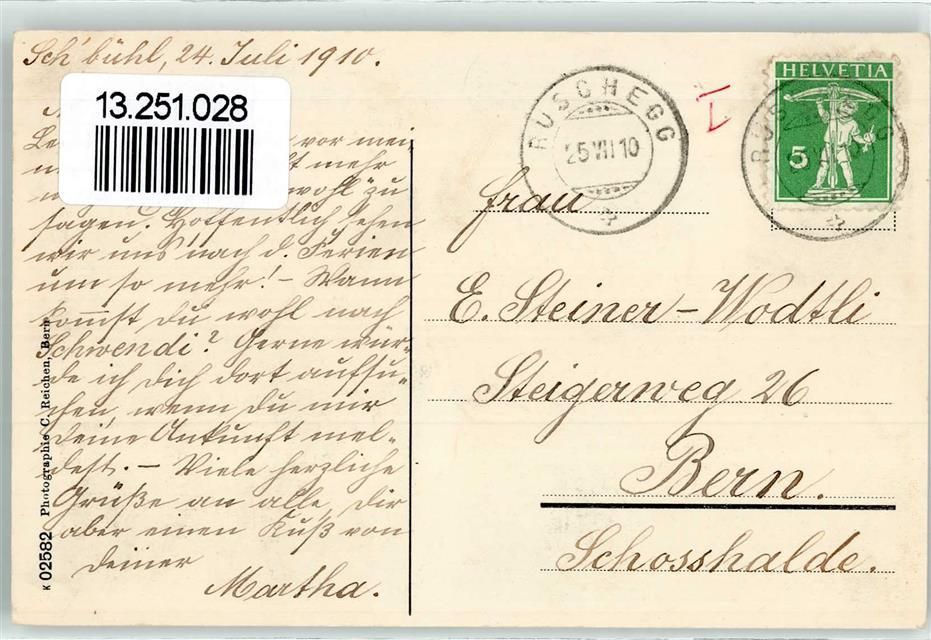 Sch'bühl, 24. Juli 1910.
13.251.028
vor mei-
mehr
wohl" zu
sagen. Hoffentlich sehen
wir uns nach d. Ferien
um so mehr! – Wann
kommst Du wohl nach
Schwendi? Gerne wür-
de ich Dich dort aufsu-
chen, wenn Du mir
Deine Ankunft mel-
dest. – Viele herzliche
Grüße an alle, Dir
aber einen Kuß von
Deiner
Martha.
K 02582 Photographie C. Reichen, Bern
RUSCHEGG
25 VII 10
I
HELVETIA
5
Frau
E. Steiner-Wodtli
Steigerweg 26
Bern.
Schosshalde.